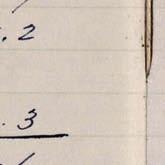 . 2
. 3